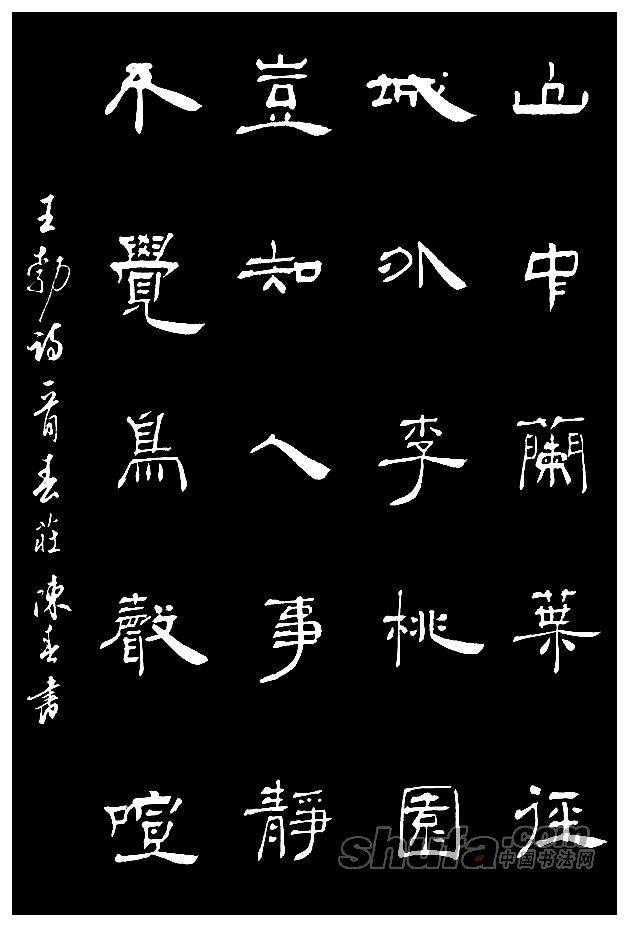 山中蘭葉徑
城外李桃園
豈知人事靜
不覺鳥聲喧
王勃詩一首春莊陳春書
shufa.com
中国书法网